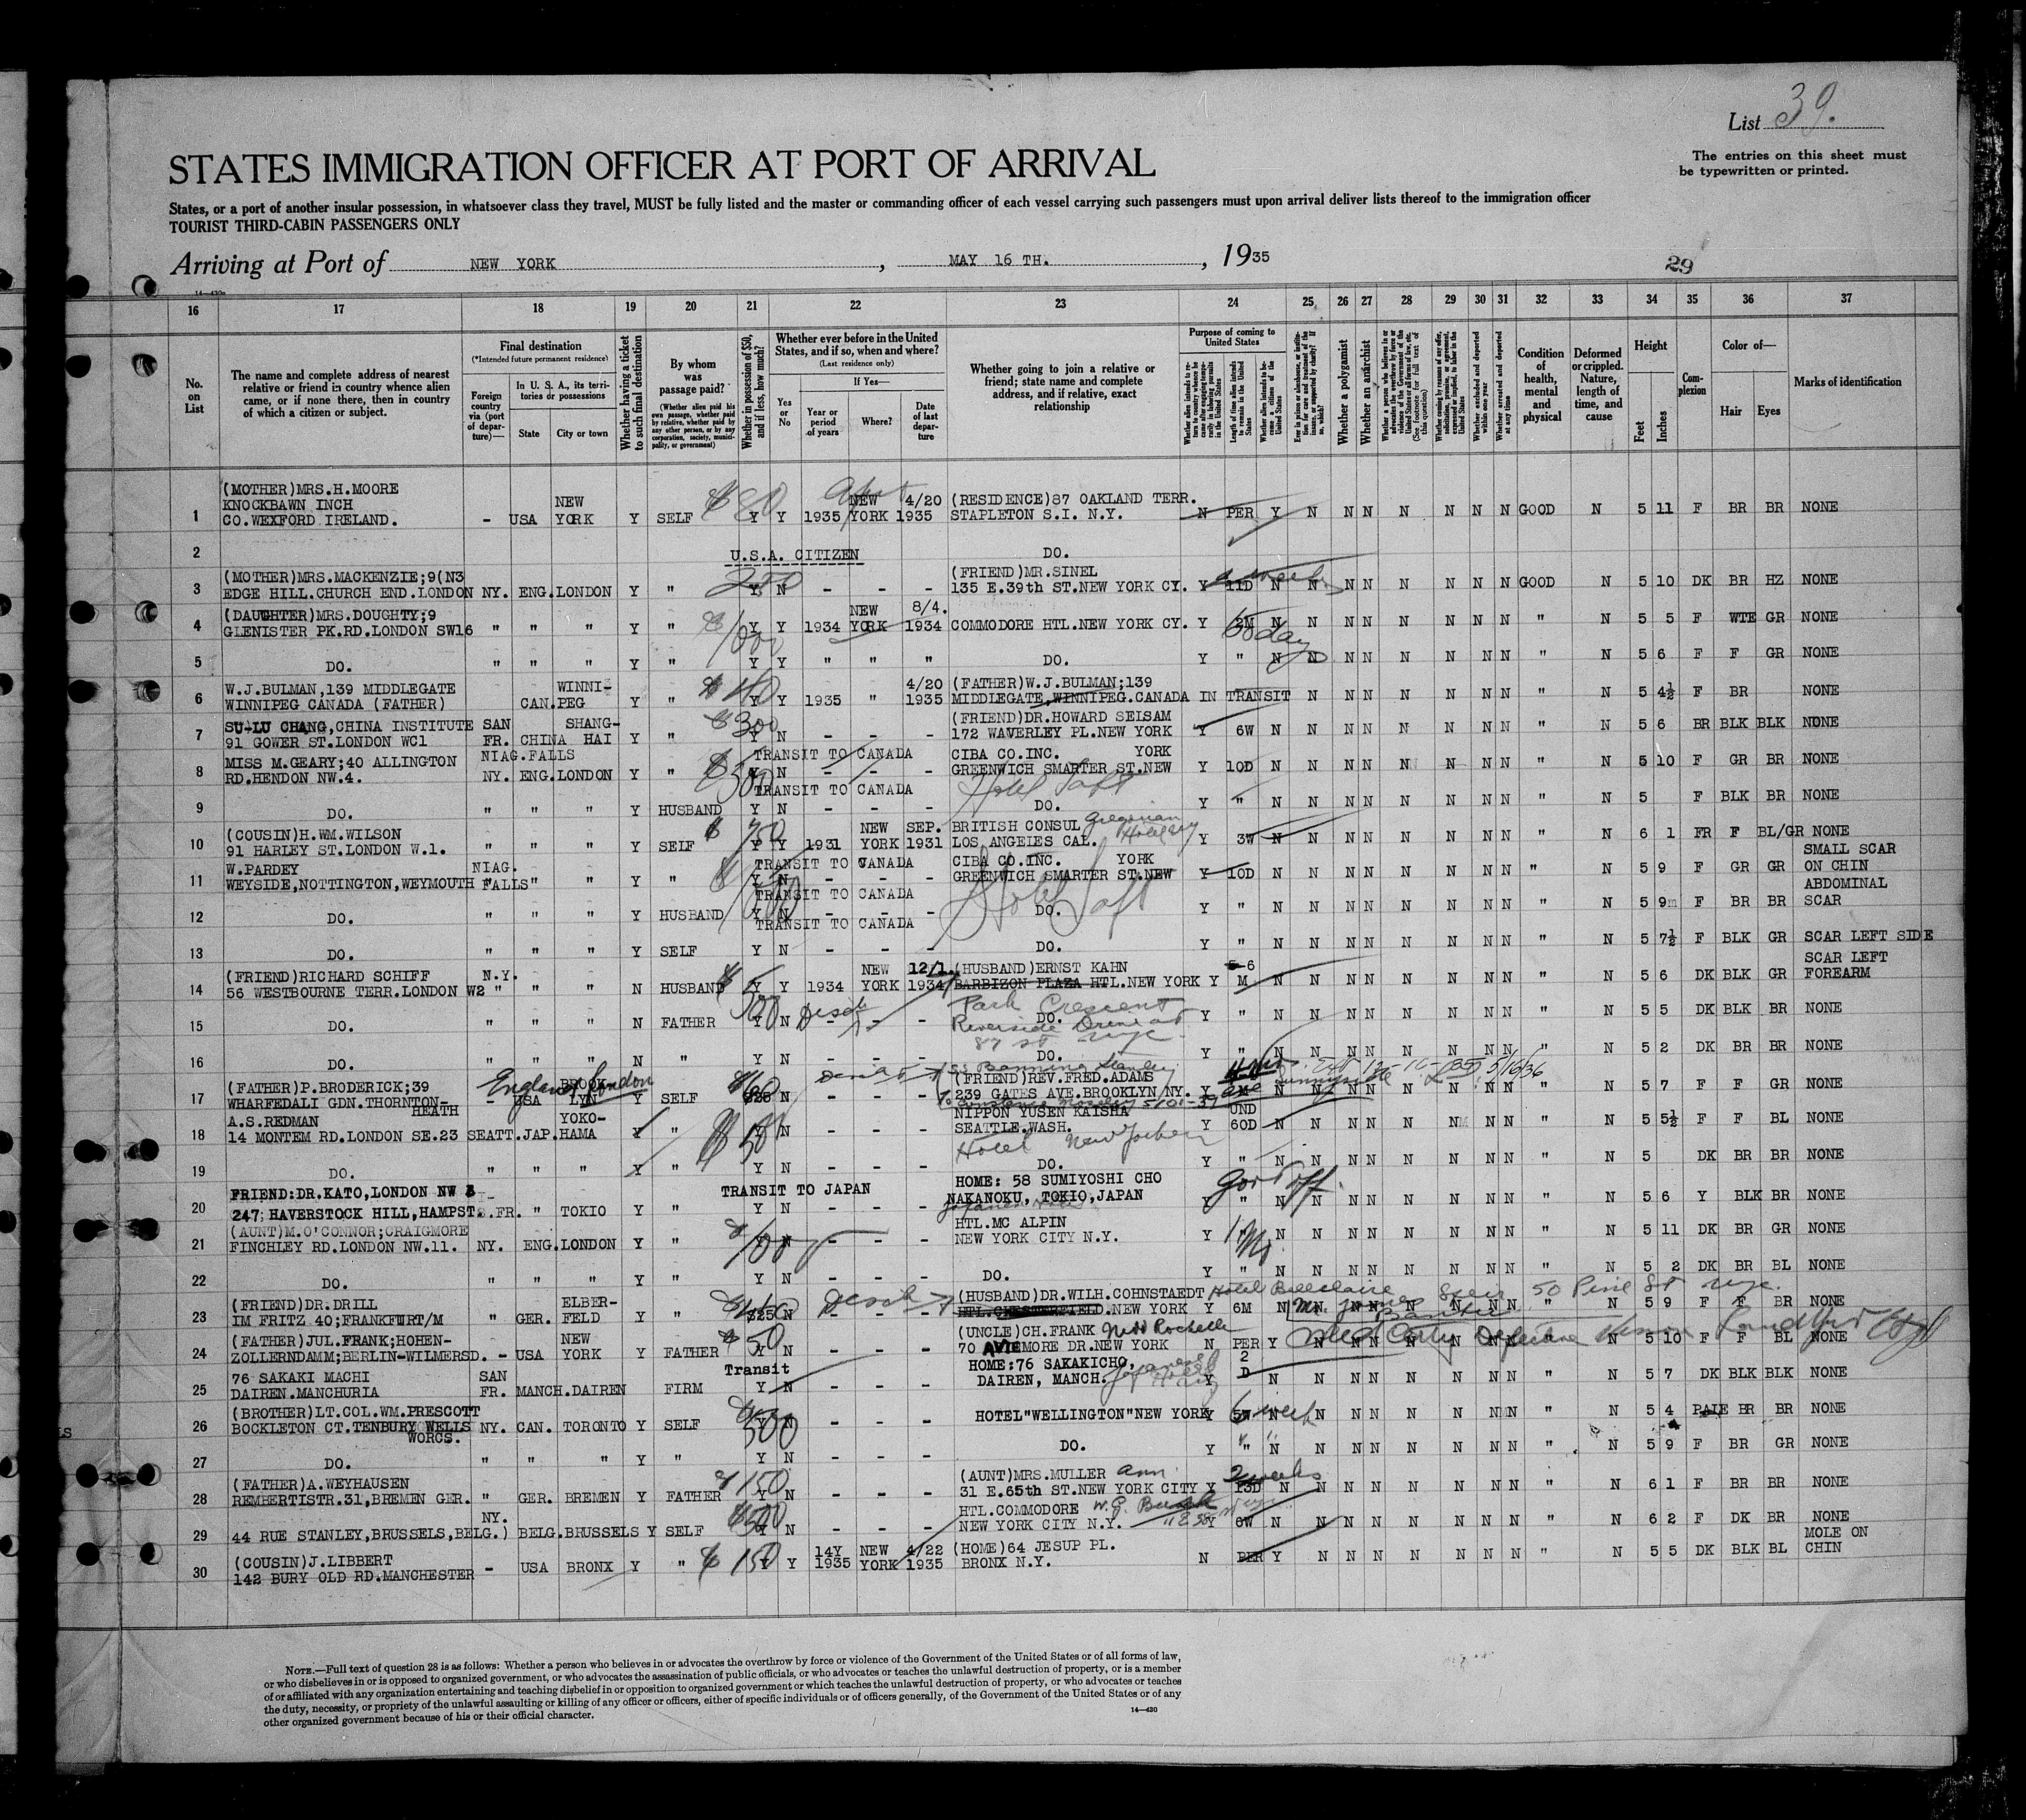 List 39.
STATES IMMIGRATION OFFICER AT PORT OF ARRIVAL
The entries on this sheet must
be typewritten or printed.
States, or a port of another insular possession, in whatsoever class they travel, MUST be fully listed and the master or commanding officer of each vessel carrying such passengers must upon arrival deliver lists thereof to the immigration officer
TOURIST THIRD-CABIN PASSENGERS ONLY
Arriving at Port of NEW YORK, MAY 16 TH., 1935
29
16 17 18 19 20 21 22 23 24 25 26 27 28 29 30 31 32 33 34 35 36 37
No. on List
The name and complete address of nearest relative or friend in country whence alien came, or if none there, then in country of which a citizen or subject.
Final destination
(*Intended future permanent residence)
Foreign country via (port of departure)—
In U. S. A., its territories or possessions
State
City or town
Whether having a ticket to such final destination
By whom was passage paid?
(Whether alien paid his own passage, whether paid by relative, whether paid by any other person, or by any corporation, society, municipality, or government)
Whether in possession of $50, and if less, how much?
Whether ever before in the United States, and if so, when and where?
(Last residence only)
Yes or No
If Yes—
Year or period of years
Where?
Date of last departure
Whether going to join a relative or friend; state name and complete address, and if relative, exact relationship
Purpose of coming to United States
Whether a polygamist
Whether an anarchist
Condition of health, mental and physical
Deformed or crippled. Nature, length of time, and cause
Height
Feet
Inches
Complexion
Color of—
Hair
Eyes
Marks of identification
1 (MOTHER)MRS.H.MOORE KNOCKBAWN INCH CO.WEXFORD IRELAND. - USA NEW YORK Y SELF $80 Y Y 1935 NEW YORK 4/20 1935 (RESIDENCE)87 OAKLAND TERR. STAPLETON S.I. N.Y. N PER Y N N N N N N N GOOD N 5 11 F BR BR NONE
2 U.S.A. CITIZEN DO.
3 (MOTHER)MRS.MACKENZIE;9(N3 EDGE HILL.CHURCH END.LONDON NY. ENG.LONDON Y " 250 Y N - - - (FRIEND)MR.SINEL 135 E.39th ST.NEW YORK CY. Y 11D N N N N N N N N GOOD N 5 10 DK BR HZ NONE
4 (DAUGHTER)MRS.DOUGHTY;9 GLENISTER PK.RD.LONDON SW16 " " " Y " Y Y 1934 NEW YORK 8/4. 1934 COMMODORE HTL.NEW YORK CY. Y 2M N N N N N N N N " N 5 5 F WTE GR NONE
5 DO. " " " Y " 1000 Y Y " " " DO. Y " N N N N N N N N " N 5 6 F F GR NONE
6 W.J.BULMAN,139 MIDDLEGATE WINNIPEG CANADA (FATHER) CAN. WINNI-PEG Y " $40 Y Y 1935 " 4/20 1935 (FATHER)W.J.BULMAN;139 MIDDLEGATE,WINNIPEG.CANADA IN TRANSIT N N N N N N N " N 5 4½ F BR NONE
7 SU-LU CHANG,CHINA INSTITUTE 91 GOWER ST.LONDON WC1 SAN FR. CHINA SHANG-HAI Y " $300 Y N - - - (FRIEND)DR.HOWARD SEISAM 172 WAVERLEY PL.NEW YORK Y 6W N N N N N N N N " N 5 6 BR BLK BLK NONE
8 MISS M.GEARY;40 ALLINGTON RD.HENDON NW.4. NIAG.FALLS NY. ENG.LONDON Y " $500 Y N TRANSIT TO CANADA - - - CIBA CO.INC. GREENWICH SMARTER ST.NEW YORK Y 10D N N N N N N N N " N 5 10 F GR BR NONE
9 DO. " " " Y HUSBAND Y N TRANSIT TO CANADA - - - Hotel Taft DO. Y " N N N N N N N N " N 5 F BLK BR NONE
10 (COUSIN)H.WM.WILSON 91 HARLEY ST.LONDON W.1. " " " Y SELF $750 Y Y 1931 NEW YORK SEP. 1931 BRITISH CONSUL LOS ANGELES CAL. Gregorian Hotel Y 3W N N N N N N N N " N 6 1 FR F BL/GR NONE
11 W.PARDEY WEYSIDE,NOTTINGTON,WEYMOUTH NIAG. FALLS " " Y " Y N TRANSIT TO CANADA - - - CIBA CO.INC. GREENWICH SMARTER ST.NEW YORK Y 10D N N N N N N N N " N 5 9 F GR GR SMALL SCAR ON CHIN
12 DO. " " " Y HUSBAND Y N TRANSIT TO CANADA - - - Hotel Taft DO. Y " N N N N N N N N " N 5 9 F BR BR ABDOMINAL SCAR
13 DO. " " " Y SELF Y N TRANSIT TO CANADA - - - DO. Y " N N N N N N N N " N 5 7½ F BLK GR SCAR LEFT SIDE
14 (FRIEND)RICHARD SCHIFF 56 WESTBOURNE TERR.LONDON W2 N.Y. " " " N HUSBAND $500 Y Y 1934 NEW YORK 12/1. 1934 (HUSBAND)ERNST KAHN BARBIZON PLAZA HTL.NEW YORK Y 5-6 M N N N N N N N N " N 5 6 DK BLK GR SCAR LEFT FOREARM
15 DO. " " " N FATHER Y N - - - Park Crescent DO. Riverside Drive at 87 st nyc. Y " N N N N N N N N " N 5 5 DK BLK BR NONE
16 DO. " " " N " Y N - - - DO. Y " N N N N N N N N " N 5 2 DK BR BR NONE
17 (FATHER)P.BRODERICK;39 WHARFEDALI GDN.THORNTON-HEATH England London - USA BROOK-LYN Y SELF $60 $25 N - - - (FRIEND)REV.FRED.ADAMS 239 GATES AVE.BROOKLYN/NY. Y N N N N N N N N 5/16/36 " N 5 7 F F GR NONE
18 A.S.REDMAN 14 MONTEM RD.LONDON SE.23 SEATT.JAP. YOKO-HAMA Y " Y N - - - NIPPON YUSEN KAISHA SEATTLE.WASH. Y UND 60D N N N N N N N N " N 5 5½ F F BL NONE
19 DO. " " " Y " Y N - - - Hotel New Yorker DO. Y " N N N N N N N N " N 5 DK BR BR NONE
20 FRIEND:DR.KATO,LONDON NW 3 247; HAVERSTOCK HILL,HAMPST. S.FR. " TOKIO Y " TRANSIT TO JAPAN Y N - - - HOME: 58 SUMIYOSHI CHO NAKANOKU, TOKIO,JAPAN Y " N N N N N N N N " N 5 6 Y BLK BR NONE
21 (AUNT)M.O'CONNOR;CRAIGMORE FINCHLEY RD.LONDON NW.11. NY. ENG.LONDON Y " $100 Y N - - - HTL.MC ALPIN NEW YORK CITY N.Y. Y " N N N N N N N N " N 5 11 DK BR GR NONE
22 DO. " " " Y " Y N - - - DO. Y " N N N N N N N N " N 5 2 DK BR BL NONE
23 (FRIEND)DR.DRILL IM FRITZ 40;FRANKFURT/M " GER. ELBER-FELD Y " $25 N - - - (HUSBAND)DR.WILH.COHNSTAEDT HTL.CHESTERFIELD.NEW YORK Hotel Belleclaire 50 Pine St nyc. Y 6M N N N N N N N N " N 5 9 F F BR NONE
24 (FATHER)JUL.FRANK;HOHEN-ZOLLERNDAMM;BERLIN-WILMERSD. - USA NEW YORK Y FATHER $50 Y N - - - (UNCLE)CH.FRANK New Rochelle 70 AVIEMORE DR.NEW YORK N PER Y N N N N N N N Med Cert Defective Vision " N 5 10 F F BL NONE
25 76 SAKAKI MACHI DAIREN.MANCHURIA SAN FR. MANCH.DAIREN FIRM Transit Y N - - - HOME:76 SAKAKICHO, DAIREN, MANCH. Y 2 D N N N N N N N N " N 5 7 DK BLK BLK NONE
26 (BROTHER)LT.COL.WM.PRESCOTT BOCKLETON CT.TENBURY WELLS WORCS. NY. CAN. TORONTO Y SELF $500 Y N - - - HOTEL"WELLINGTON"NEW YORK Y 6 week N N N N N N N N " N 5 4 PALE BR BR NONE
27 DO. " " " Y " Y N - - - DO. Y " N N N N N N N N " N 5 9 F BR GR NONE
28 (FATHER)A.WEYHAUSEN REMBERTISTR.31,BREMEN GER. " GER. BREMEN Y FATHER $150 Y N - - - (AUNT)MRS.MULLER Ann 31 E.65th ST.NEW YORK CITY Y 2 weeks 13D N N N N N N N N " N 6 1 F BR BR NONE
29 44 RUE STANLEY,BRUSSELS,BELG.) NY. BELG.BRUSSELS Y SELF $500 Y N - - - HTL.COMMODORE NEW YORK CITY N.Y. Y 6W N N N N N N N N " N 6 2 F DK BR NONE
30 (COUSIN)J.LIBBERT 142 BURY OLD RD.MANCHESTER - USA BRONX Y " $150 Y Y 14Y 1935 NEW YORK 4/22 1935 (HOME)64 JESUP PL. BRONX N.Y. N PER Y N N N N N N N " N 5 5 DK BLK BL MOLE ON CHIN
NOTE.—Full text of question 28 is as follows: Whether a person who believes in or advocates the overthrow by force or violence of the Government of the United States or of all forms of law,
or who disbelieves in or is opposed to organized government, or who advocates the assassination of public officials, or who advocates or teaches the unlawful destruction of property, or is a member
of or affiliated with any organization entertaining and teaching disbelief in or opposition to organized government or which teaches the unlawful destruction of property, or who advocates or teaches
the duty, necessity, or propriety of the unlawful assaulting or killing of any officer or officers, either of specific individuals or of officers generally, of the Government of the United States or of any
other organized government because of his or their official character.
14—430